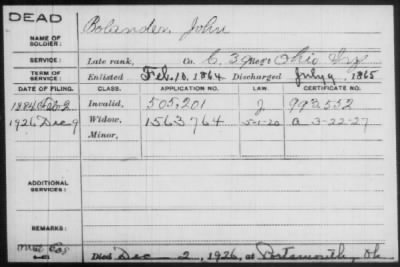 DEAD
NAME OF SOLDIER: Bolander, John
SERVICE: Late rank, Co. C. 3 Ohio
TERM OF SERVICE: Enlisted Feb. 10, 1864 Discharged July 9, 1865
DATE OF FILING. CLASS. APPLICATION NO. LAW. CERTIFICATE NO.
1884 Feb 2 Invalid, 505,201 J 993,532
1926 Dec 9 Widow, 1563764 5-1-20 a 3-22-27
Minor,
ADDITIONAL SERVICES:
REMARKS:
Died Dec 2, 1926, at Portsmouth, Oh